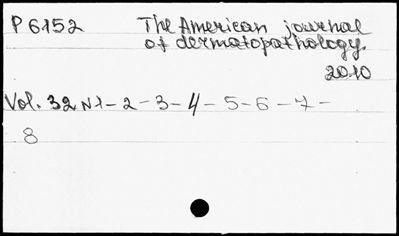 P6152 The American journal
of dermatopathology.
2010
Vol. 32 N1-2-3-4-5-6-7-
8